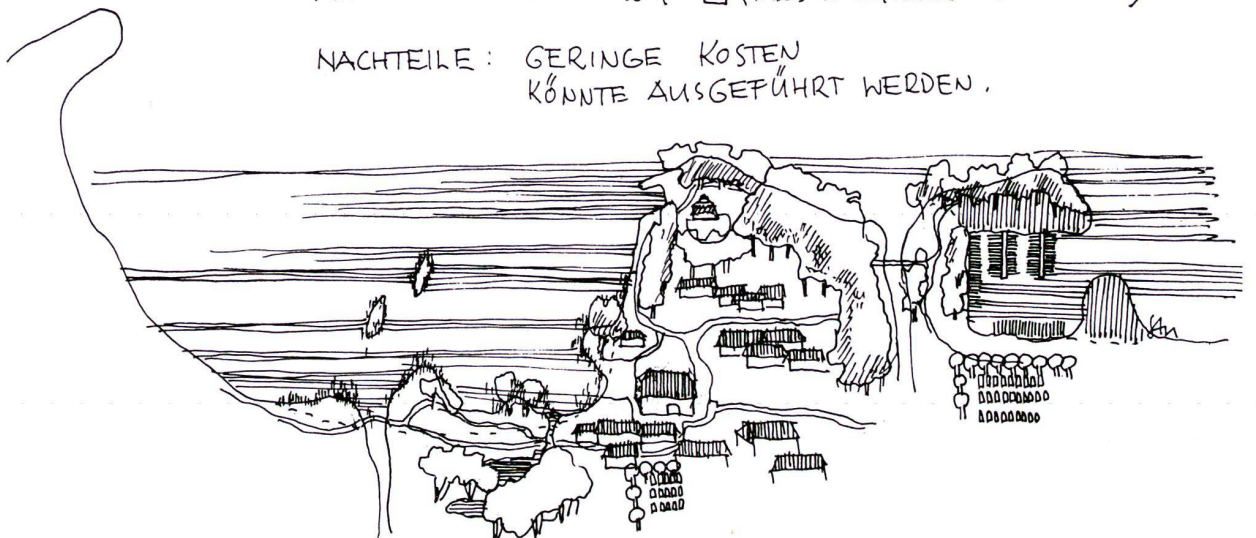 NACHTEILE: GERINGE KOSTEN
KÖNNTE AUSGEFÜHRT WERDEN.